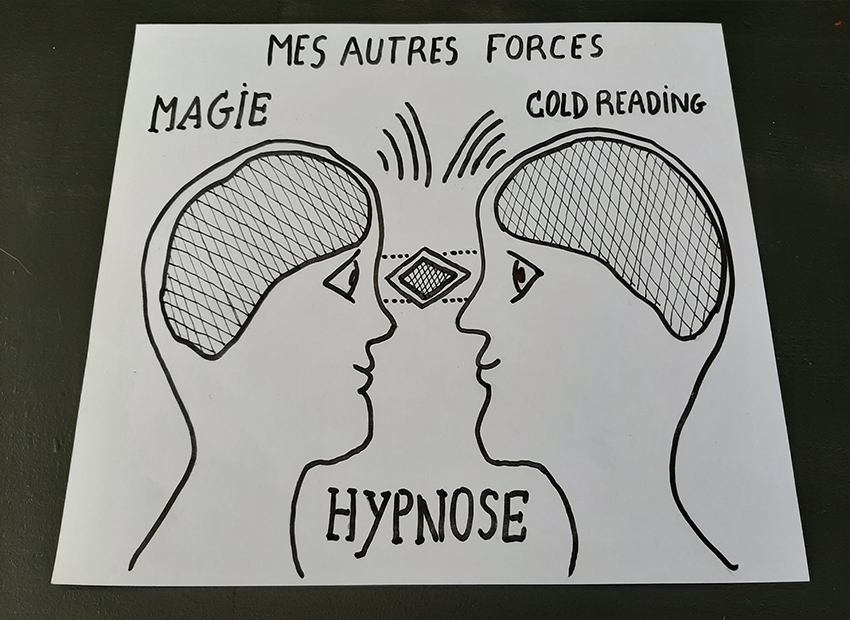 MES AUTRES FORCES
MAGiE
COLD READiNG
HYPNOSE